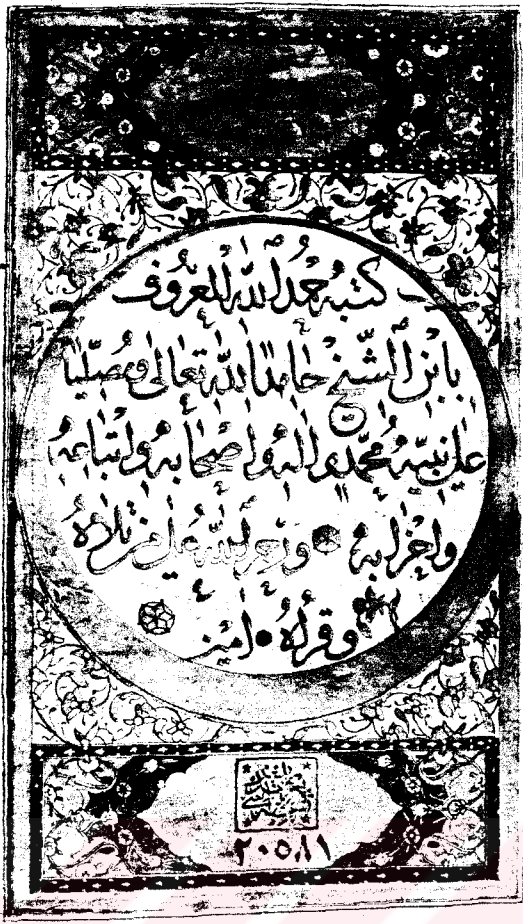 كتبه حمد الله المعروف
بابن الشيخ حامدا لله تعالى ومصليا
على نبيه محمد واله واصحابه واتباعه
واحزابه ورحم الله على من تلاه
وقراه امين
٢٠٥٨١